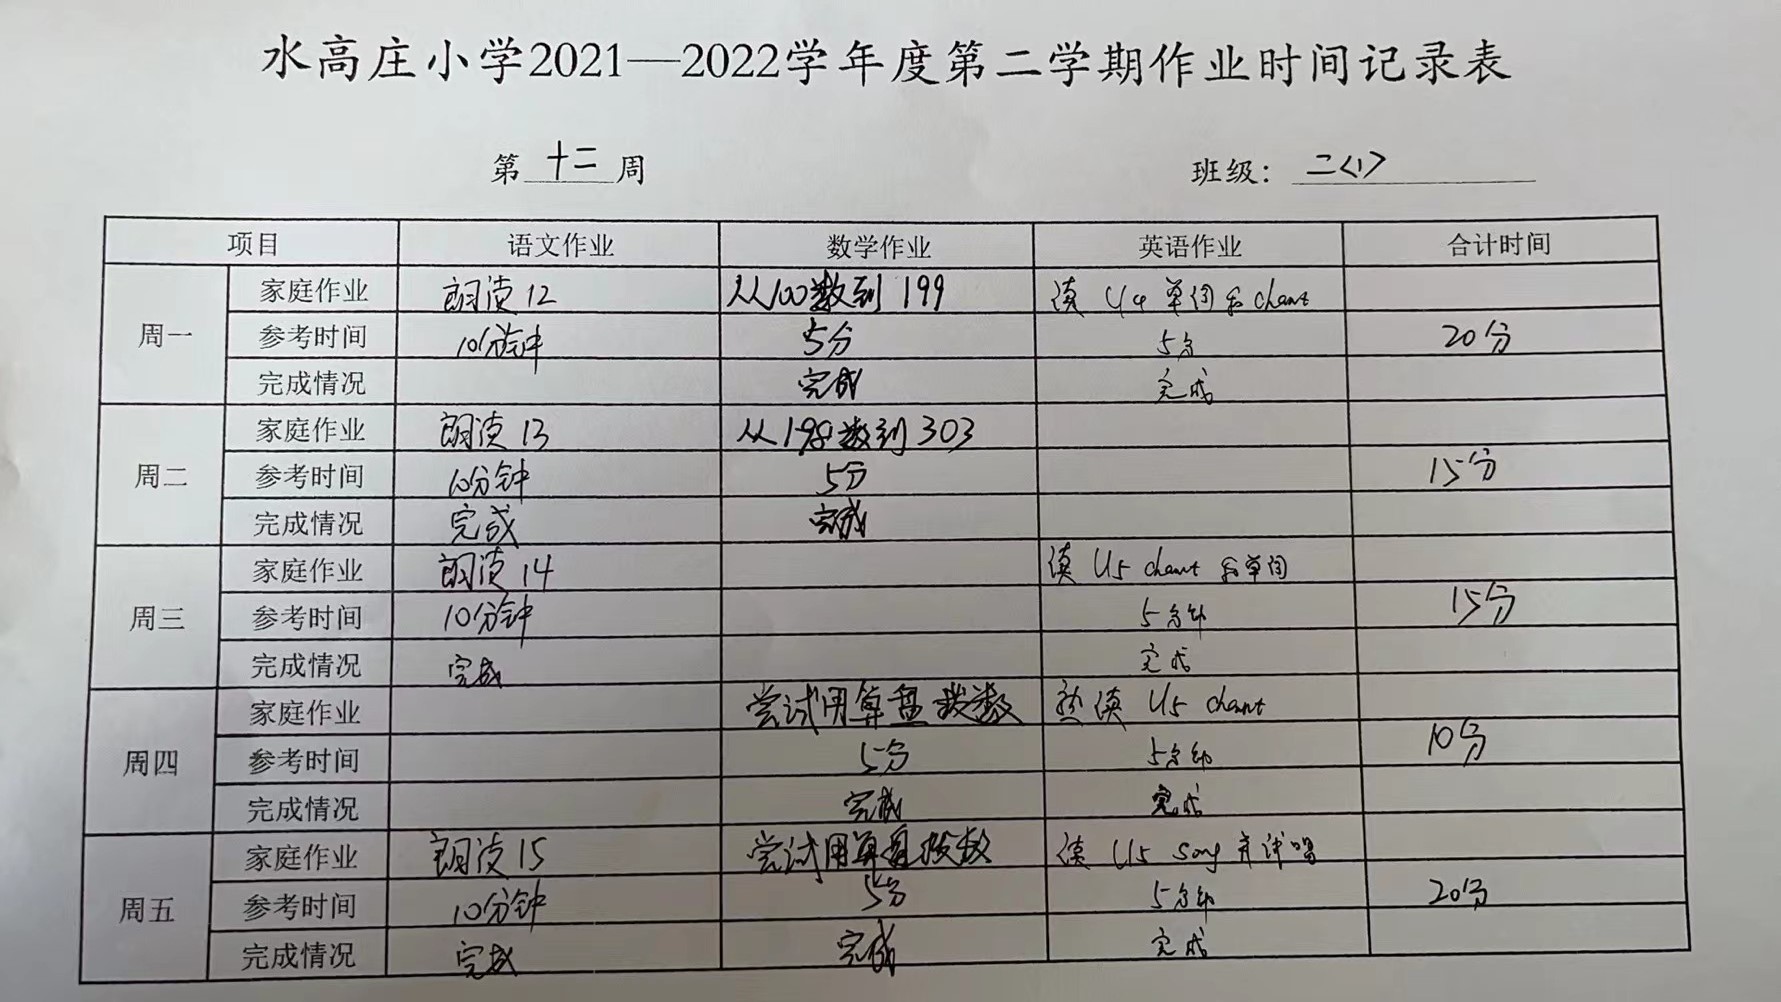 水高庄小学2021—2022学年度第二学期作业时间记录表
第 十二 周 班级: 二<1>
项目 语文作业 数学作业 英语作业 合计时间
周一 家庭作业 朗读12 从100数到199 读 U4 单词和 chant
参考时间 10分钟 5分 5分 20分
完成情况 完成 完成
周二 家庭作业 朗读13 从198数到303
参考时间 10分钟 5分 15分
完成情况 完成 完成
周三 家庭作业 朗读14 读 U5 chant 和单词
参考时间 10分钟 5分钟 15分
完成情况 完成 完成
周四 家庭作业 尝试用算盘拨数 熟读 U5 chant
参考时间 5分 5分钟 10分
完成情况 完成 完成
周五 家庭作业 朗读15 尝试用算盘拨数 读 U5 song 并试唱
参考时间 10分钟 5分 5分钟 20分
完成情况 完成 完成 完成